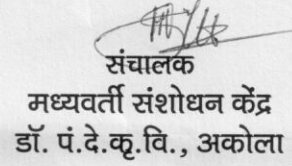 संचालक
मध्यवर्ती संशोधन केंद्र
डॉ. पं.दे.कृ.वि., अकोला